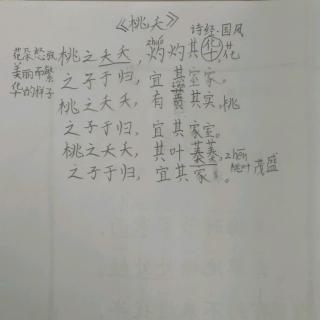 《桃夭》
诗经·国风
花朵怒放
美丽而繁
华的样子
桃之夭夭,灼灼其华,花
之子于归,宜其室家,
桃之夭夭,有蕡其实,桃
之子于归,宜其家室。
桃之夭夭,其叶蓁蓁,zhēn
桃叶茂盛
之子于归,宜其家 。